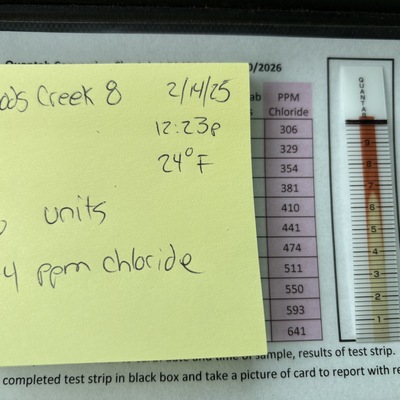 0/2026
ods Creek 8 2/14/25
12:23p
24° F
units
4 ppm chloride
ab PPM
s Chloride
306
329
354
381
410
441
474
511
550
593
641
QUANTA
9
8
7
6
5
4
3
2
1
time of sample, results of test strip.
completed test strip in black box and take a picture of card to report with re